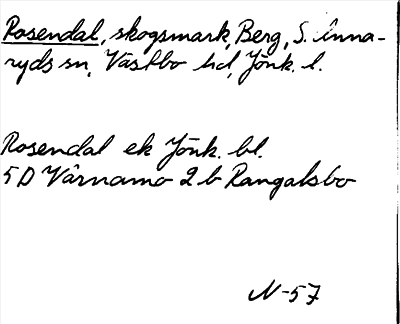 Rosendal, skogsmark, Berg, S. Unna-
ryds sn, Västbo hd, Jönk. l.
Rosendal ek Jönk. bl.
5 D Värnamo 2 b Rangalsbo
N-57